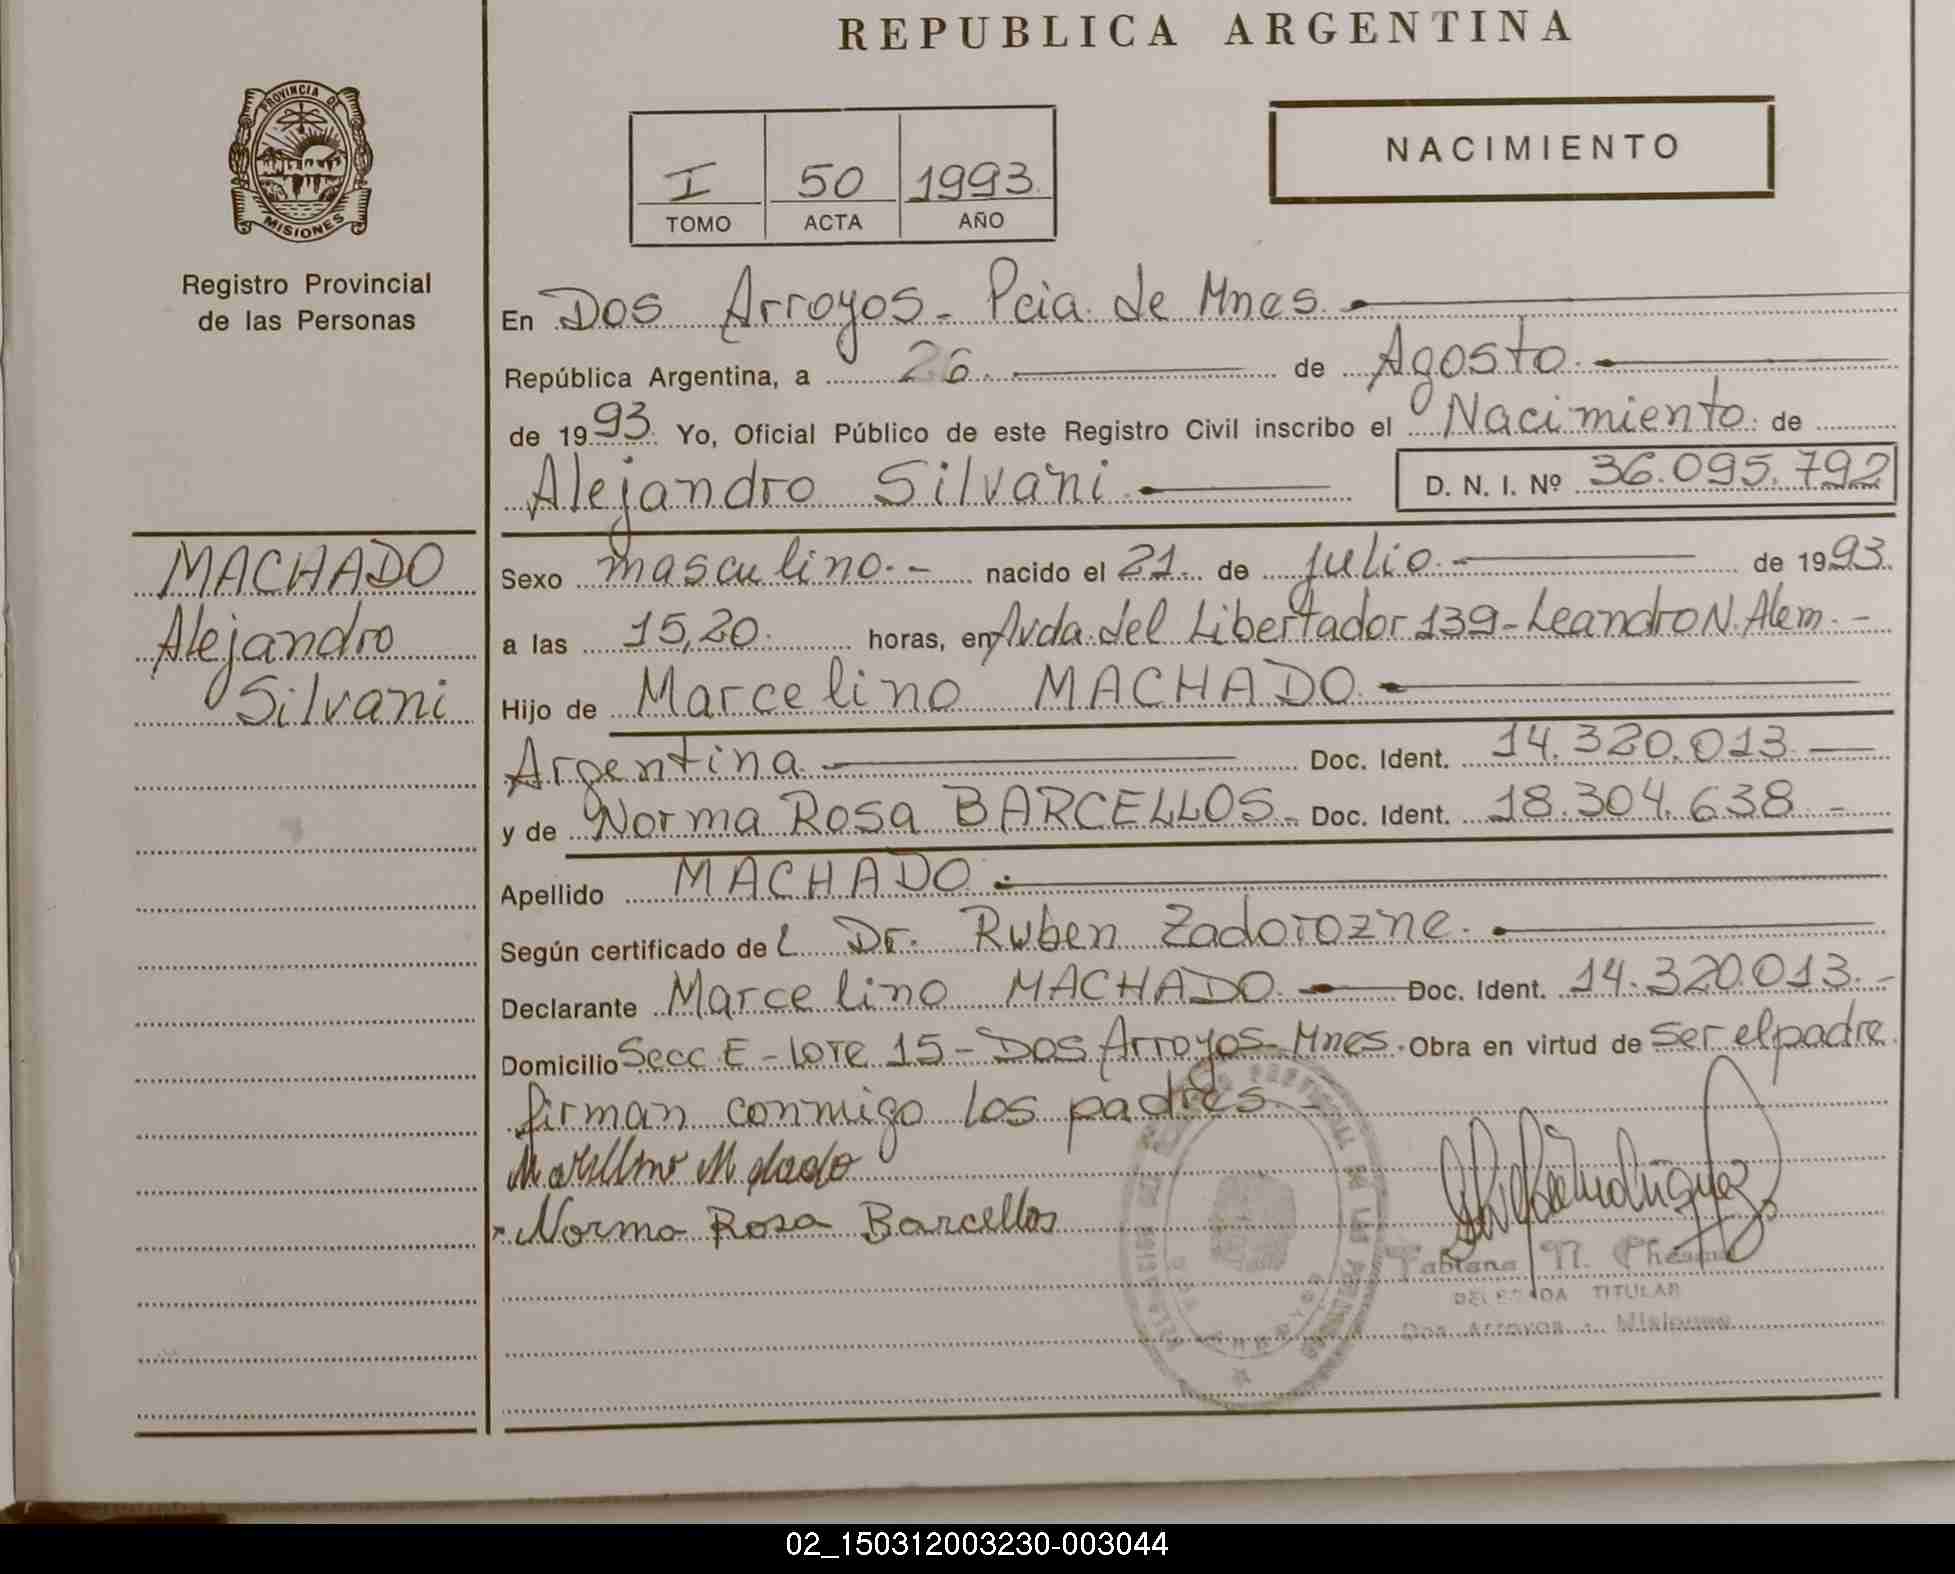 REPUBLICA ARGENTINA
PROVINCIA DE
MISIONES
Registro Provincial
de las Personas
I 50 1993
TOMO ACTA AÑO
NACIMIENTO
En Dos Arroyos - Pcia. de Mnes.
República Argentina, a 26 de Agosto
de 1993. Yo, Oficial Público de este Registro Civil inscribo el Nacimiento de
Alejandro Silvani D. N. I. Nº 36.095.792
MACHADO
Alejandro
Silvani
Sexo masculino.- nacido el 21 de julio de 1993.
a las 15,20. horas, en Avda. del Libertador 139-Leandro N. Alem.-
Hijo de Marcelino MACHADO.
Argentina Doc. Ident. 14.320.013.
y de Norma Rosa BARCELLOS- Doc. Ident. 18.304.638 -
Apellido MACHADO.
Según certificado del Dr. Ruben Zadorozne.
Declarante Marcelino MACHADO. Doc. Ident. 14.320.013.-
Domicilio Secc E - lote 15 - Dos Arroyos- Mnes. Obra en virtud de ser el padre
firman conmigo los padres.-
Norma Rosa Barcellos
Fabiana N.
DELEGADA TITULAR
Dos Arroyos - Misiones
02_150312003230-003044